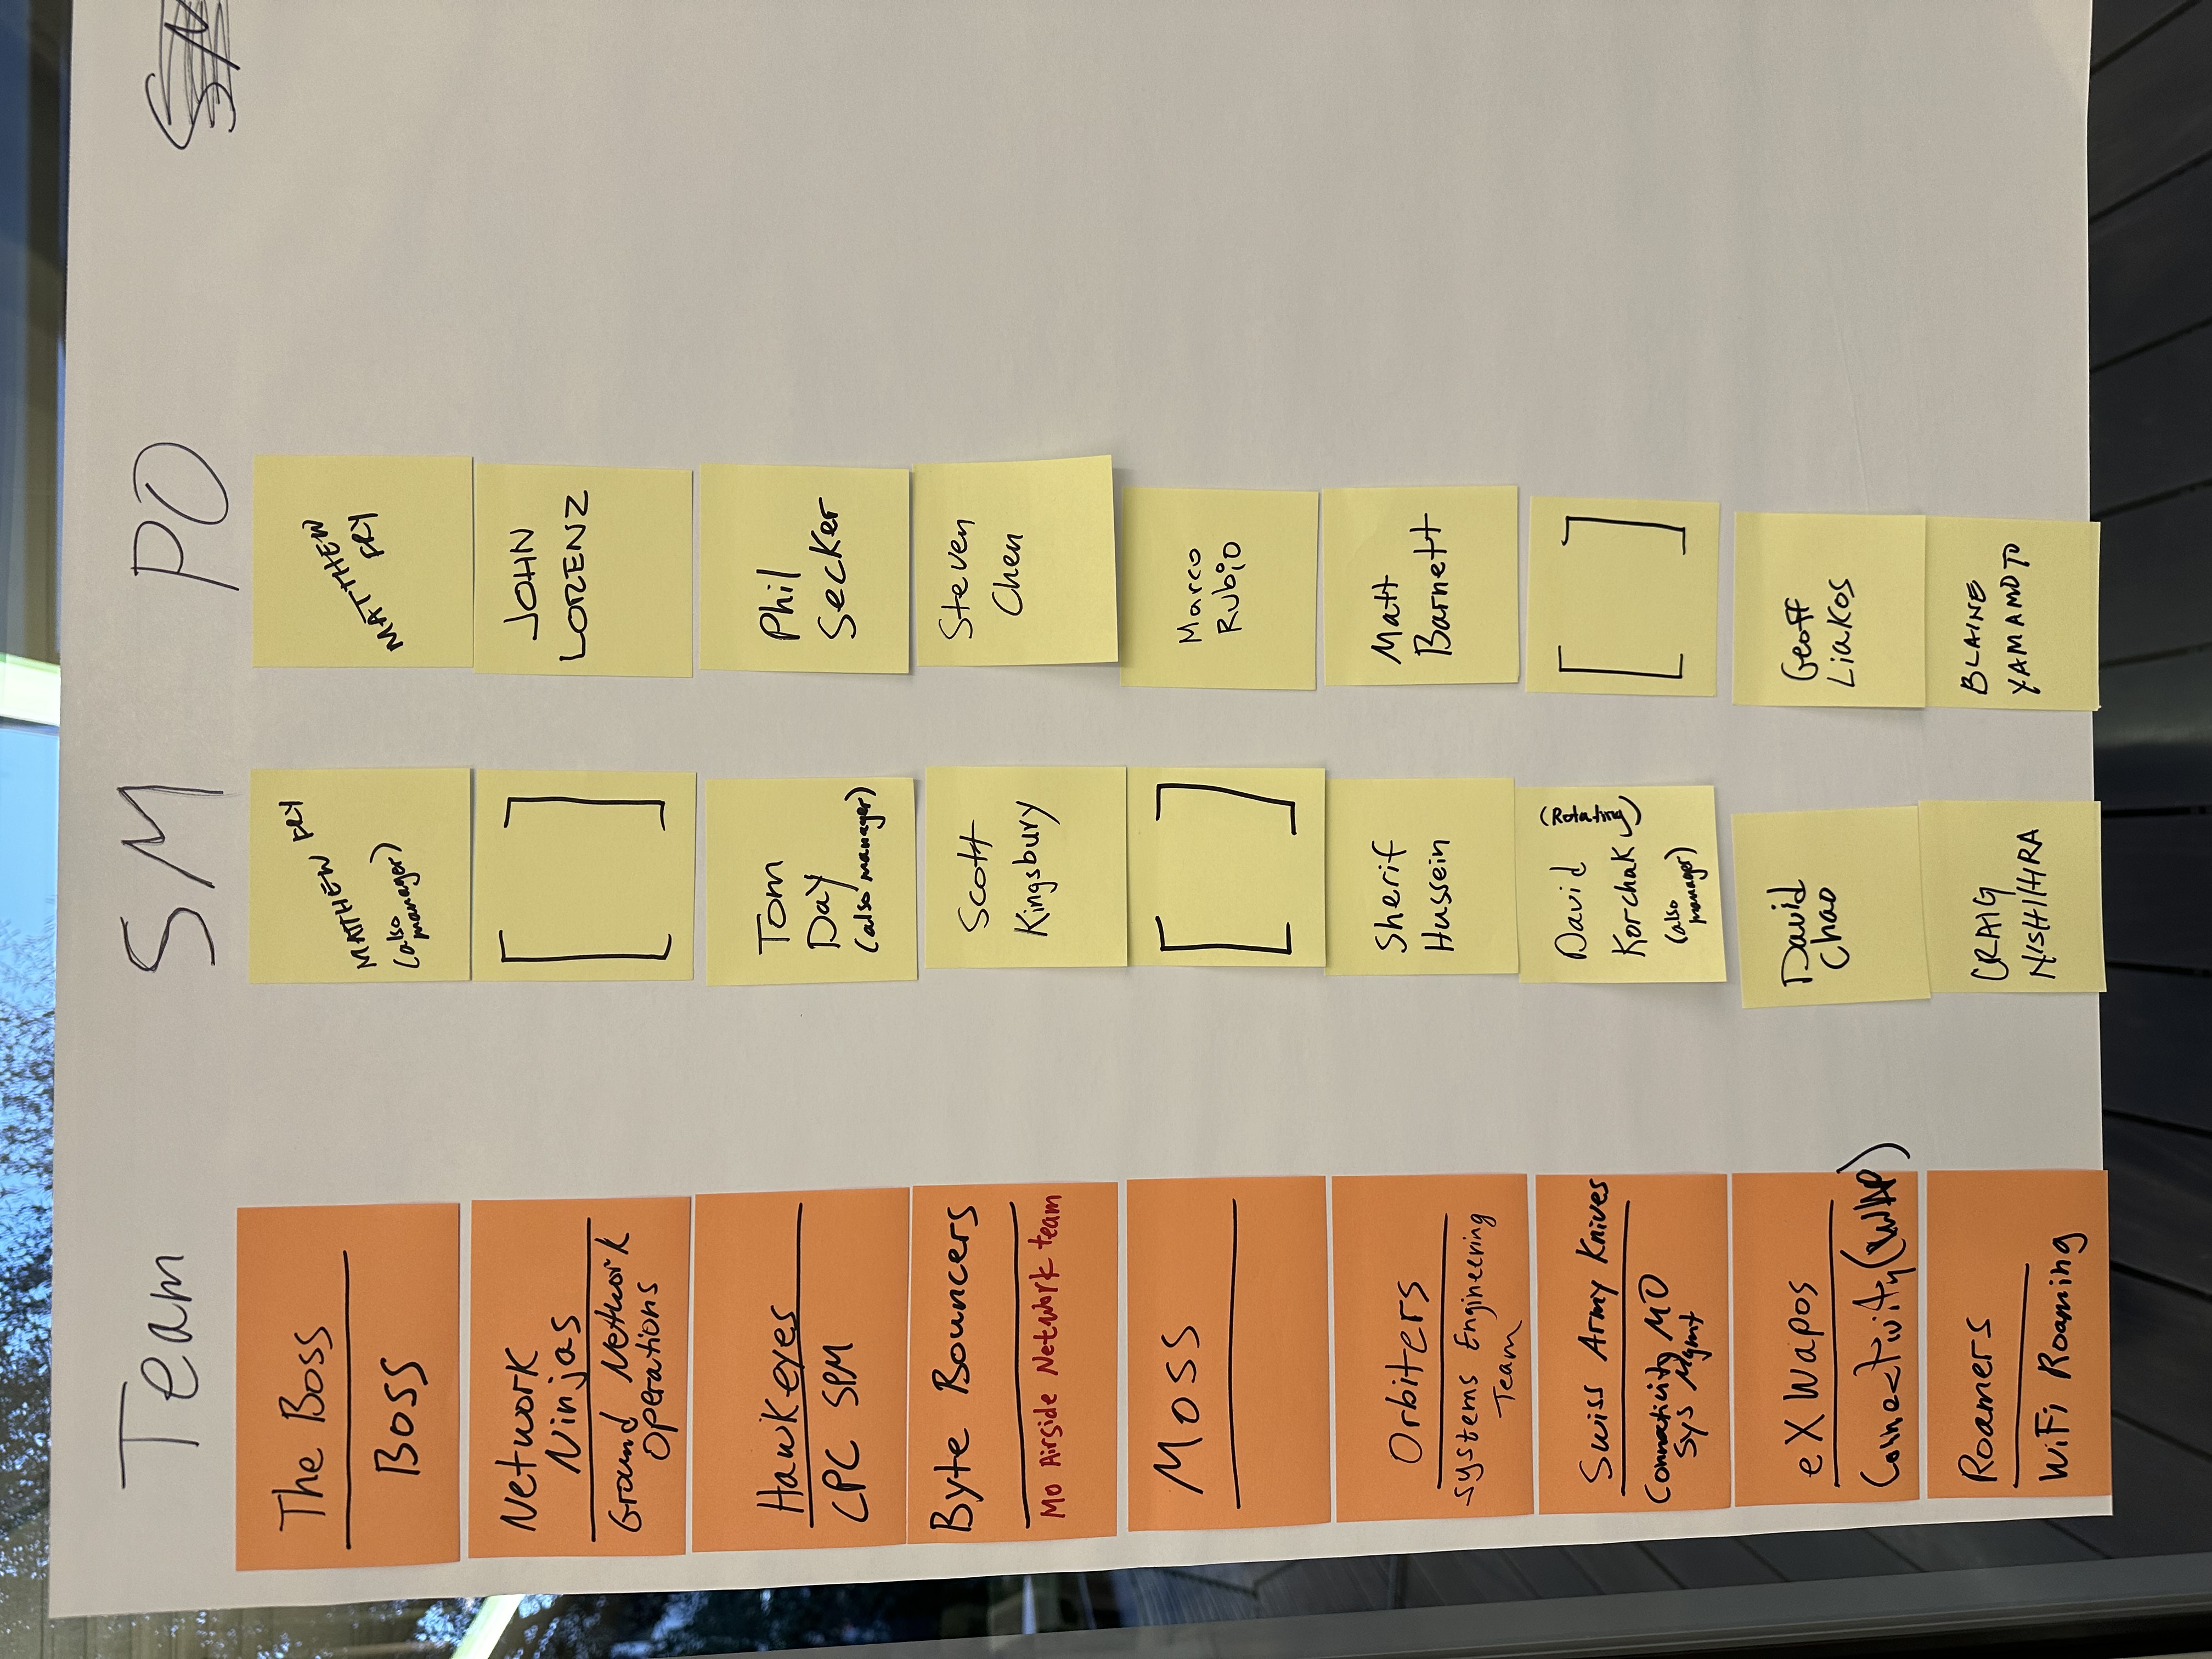 Team SM PO SM
The Boss
Boss
MATTHEW FRY
(also
manager)
MATTHEW
FRY
Network
Ninjas
Ground Network
Operations
[ ]
JOHN
LORENZ
Hawkeyes
CPC SPM
Tom
Day
(also manager)
Phil
Secker
Byte Bouncers
Mo Airside Network team
Scott
Kingsbury
Steven
Chen
Moss
[ ]
Marco
Rubio
Orbiters
Systems Engineering
Team
Sherif
Hussein
Matt
Barnett
Swiss Army Knives
Connecticity MO
Sys Mgmt
David
Korchak
(Rotating)
(also
manager)
[ ]
eXWapos
Connectivity
David
Chao
Geoff
Liakos
Roamers
WiFi Roaming
CRAIG
BLAINE
YAMAMOTO